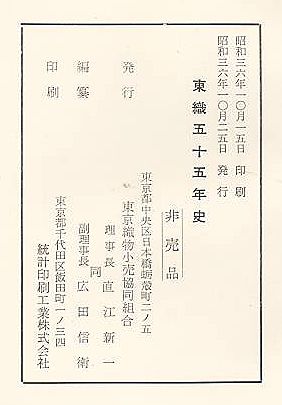 昭和三六年一〇月一五日 印刷
昭和三六年一〇月二五日 発行
東織五十五年史
非売品
東京都中央区日本橋蛎殻町二ノ五
発行 東京織物小売協同組合
理事長 直江新一
同
編纂 副理事長 広田信衛
東京都千代田区飯田町一ノ三四
印刷 統計印刷工業株式会社